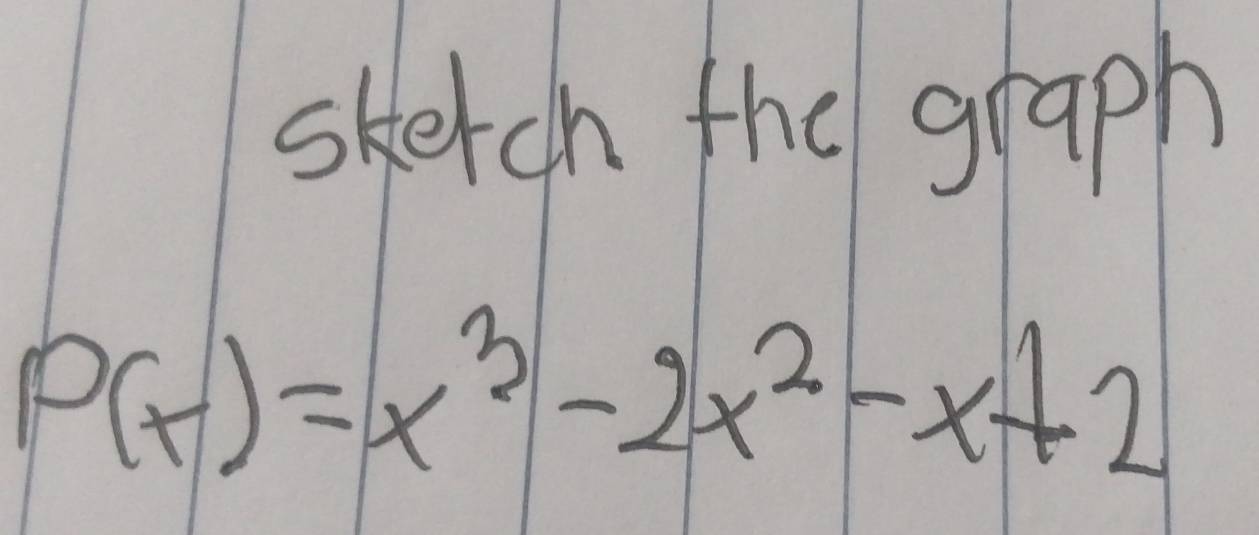 sketch the graph
P(x) = x³ - 2x² - x + 2